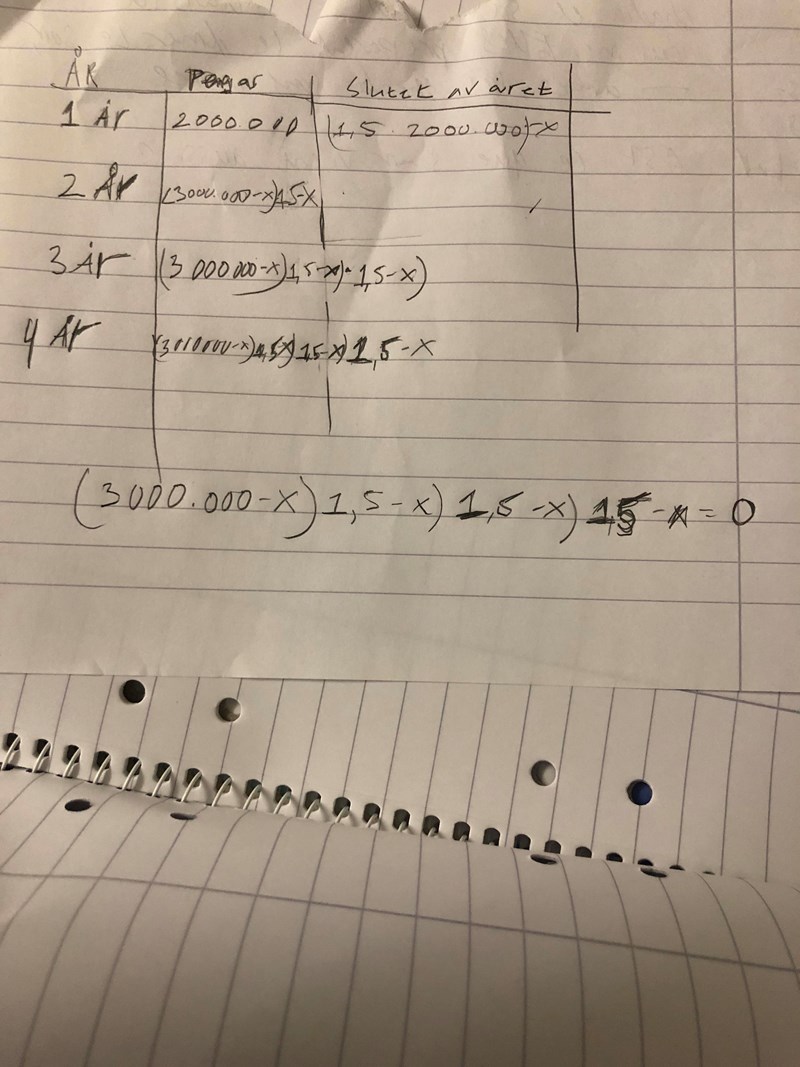 ÅR Pengar Slutet av året
1 År 2000.000 (1,5 · 2000.000)-x
2 År (3000.000-x)1,5-x
3 År (3 000 000-x)1,5-x)·1,5-x)
4 År (3000000-x)1,5x)1,5-x)1,5-x
(3000.000-x)1,5-x)1,5-x)1,5-x=0